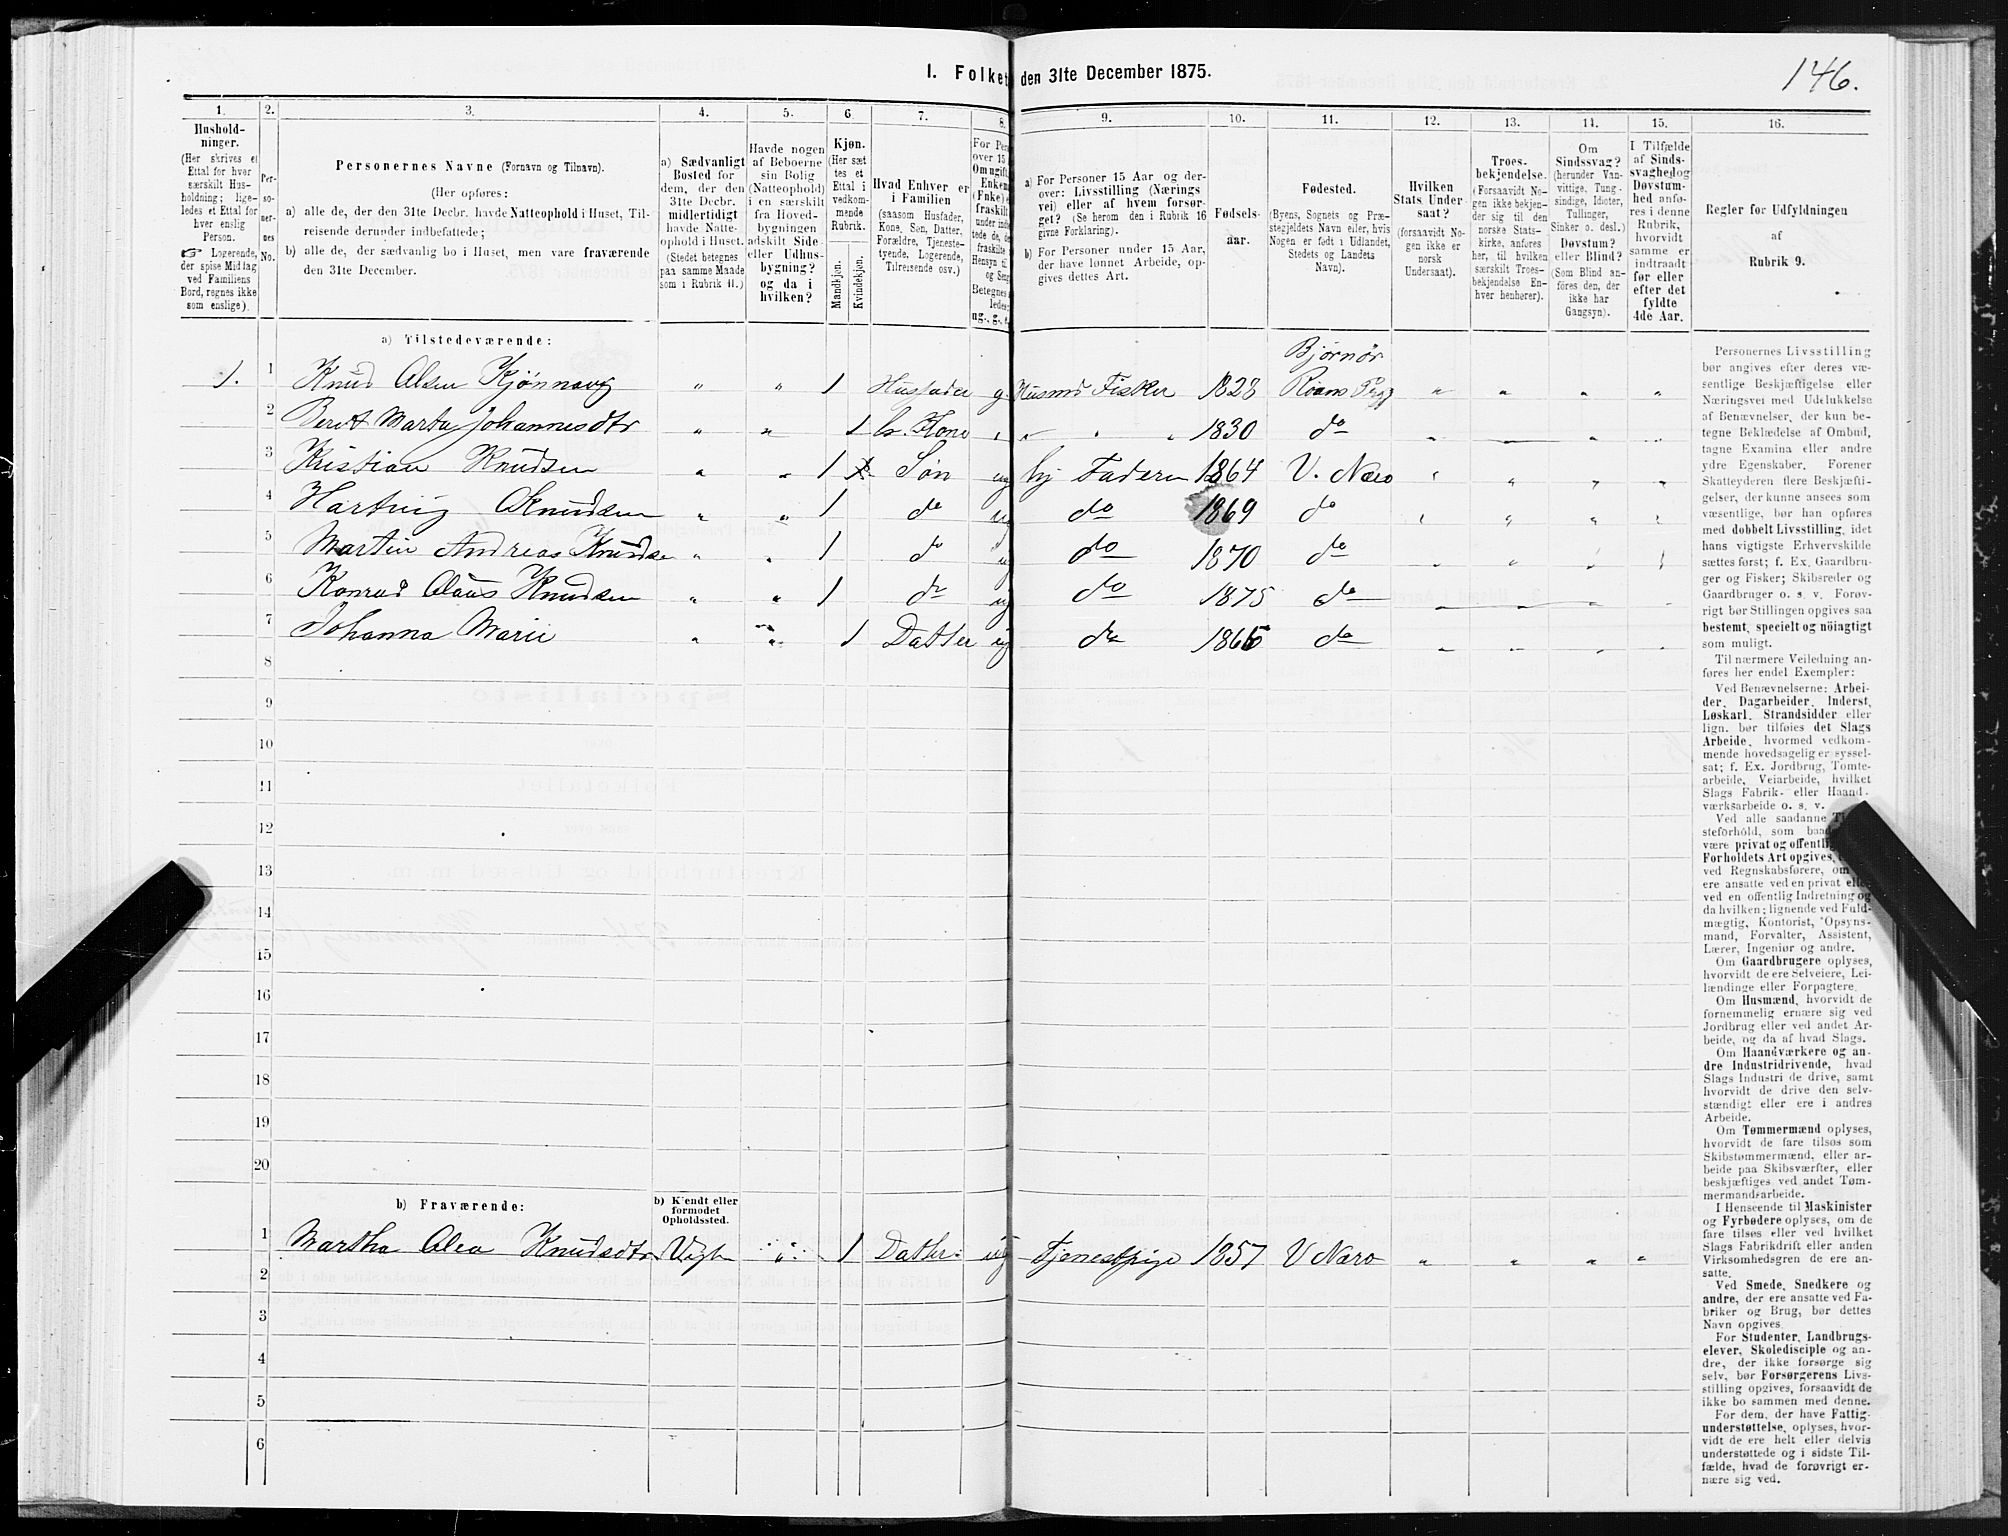 I. Folket den 31te December 1875.
146.
1.
2.
3.
4.
5.
6
7.
8.
9.
10.
11.
12.
13.
14.
15.
16.
Hushold-
ninger.
(Her skrives et
Ettal for hver
særskilt Hus-
holdning; lige-
ledes et Ettal for
hver enslig
Person.
☞ Logerende,
der spise Middag
ved Familiens
Bord, regnes ikke
som enslige).
Per-
so-
ner-
nes
No.
Personernes Navne (Fornavn og Tilnavn).
(Her opføres:
a) alle de, der den 31te Decbr. havde Natteophold i Huset, Til-
reisende derunder indbefattede;
b) alle de, der sædvanlig bo i Huset, men vare fraværende
den 31te December.
a) Sædvanligt
Bosted for
dem, der den
31te Decbr.
midlertidigt
havde Natte-
ophold i Huset.
(Stedet betegnes
paa samme Maade
som i Rubrik 11.)
Havde nogen
af Beboerne
sin Bolig
(Natteophold)
i en særskilt
fra Hoved-
bygningen
adskilt Side-
eller Udhus-
bygning?
og da i
hvilken?
Kjøn.
(Her sæt-
tes et
Ettal i
vedkom-
mende
Rubrik.
Mandkjøn.
Kvindekjøn.
Hvad Enhver er
i Familien
(saasom Husfader,
Kone, Søn, Datter,
Forældre, Tjeneste-
tyende, Logerende,
Tilreisende osv.)
For Per
over 15
Om ugift
Enkem
(Enke) e
fraskilt
under indb
tede de, de
fraskilte
Hensyn til
og Seng
Betegnes
ledes:
ug., g., e
a) For Personer 15 Aar og der-
over: Livsstilling (Nærings
vei) eller af hvem forsør-
get? (Se herom den i Rubrik 16
givne Forklaring).
b) For Personer under 15 Aar,
der have lønnet Arbeide, op-
gives dettes Art.
Fødsels-
aar.
Fødested.
(Byens, Sognets og Præ-
stegjeldets Navn eller, hvis
Nogen er født i Udlandet,
Stedets og Landets
Navn).
Hvilken
Stats Under-
saat?
(forsaavidt No-
gen ikke er
norsk
Undersaat).
Troes-
bekjendelse.
(Forsaavidt No-
gen ikke bekjen-
der sig til den
norske Stats-
kirke, anføres
her, til hvilken
særskilt Troes-
bekjendelse En-
hver henhører).
Om
Sindssvag?
(herunder Van-
vittige, Tung-
sindige, Idioter,
Tullinger,
Sinker o. desl.)
Døvstum?
eller Blind?
(Som Blind an-
føres den, der
ikke har
Gangsyn).
I Tilfælde
af Sinds-
svaghed og
Døvstum-
hed anfø-
res i denne
Rubrik,
hvorvidt
samme er
indtraadt
før eller
efter det
fyldte
4de Aar.
Regler for Udfyldningen
af
Rubrik 9.
a) Tilstedeværende:
Bjørnør
1. 1 Knud Olsen Kjønnavg " " 1 Husfader g. Husmd Fisker 1828 Roans " " " "
2 Beret Marta Johannesdtr " " 1 hs. Kone " " " 1830 do
3 Kristian Knudsen " " 1 Søn ug hj Faderen 1864 V. Næro
4 Hartvig Knudsen " " 1 do ug do 1869 do
5 Martin Andreas Knudse " " 1 do ug do 1870 do
6 Konrad Olaus Knudsen " " 1 do ug do 1875 do
7 Johanna Marie " " 1 Datter ug do 1866 do
8
9
10
11
12
13
14
15
16
17
18
19
20
b) Fraværende:
b) Kjendt eller
formodet
Opholdssted.
1 Martha Olea Knudsdtr " 1 Datter ug Tjenestpige 1857 V Næro " " " "
2
3
4
5
6
Personernes Livsstilling
bør angives efter deres væ-
sentlige Beskjæftigelse eller
Næringsvei med Udelukkelse
af Benævnelser, der kun be-
tegne Beklædelse af Ombud,
tagne Examina eller andre
ydre Egenskaber. Forener
Skatteyderen flere Beskjæfti-
gelser, der kunne ansees som
væsentlige, bør han opføres
med dobbelt Livsstilling, idet
hans vigtigste Erhvervskilde
sættes først; f. Ex. Gaardbru-
ger og Fisker; Skibsreder og
Gaardbruger o. s. v. Forøv-
rigt bør Stillingen opgives saa
bestemt, specielt og nöiagtigt
som muligt.
Til nærmere Veiledning an-
føres her endel Exempler:
Ved Benævnelserne: Arbei-
der, Dagarbeider, Inderst,
Løskarl, Strandsidder eller
lign. bør tilføies det Slags
Arbeide, hvormed vedkom-
mende hovedsagelig er syssel-
sat; f. Ex. Jordbrug, Tomte-
arbeide, Veiarbeide, hvilket
Slags Fabrik- eller Haand-
værksarbeide o. s. v.
Ved alle saadanne
steforhold, som
være privat og offentlig
Forholdets Art opgives,
ved Regnskabsførere, om
ere ansatte ved en privat eller
ved en offentlig Indretning og
da hvilken; lignende ved Fuld-
mægtig, Kontorist, Opsyns-
mand, Forvalter, Assistent,
Lærer, Ingeniør og andre.
Om Gaardbrugere oplyses,
hvorvidt de ere Selveiere, Lei-
lændinge eller Forpagtere.
Om Husmænd, hvorvidt de
fornemmelig ernære sig ved
Jordbrug eller ved andet Ar-
beide, og da af hvad Slags.
Om Haandværkere og an-
dre Industridrivende, hvad
Slags Industri de drive, samt
hvorvidt de drive den selv-
stændigt eller ere i andres
Arbeide.
Om Tømmermænd oplyses,
hvorvidt de fare tilsøs som
Skibstømmermænd, eller ar-
beide paa Skibsværfter, eller
beskjæftiges ved andet Tøm-
mermandsarbeide.
I Henseende til Maskinister
og Fyrbødere oplyses, om de
fare tilsøs eller ved hvilket
Slags Fabrikdrift eller anden
Virksomhedsgren de ere an-
satte.
Ved Smede, Snedkere og
andre, der ere ansatte ved Fa-
briker og Brug, bør dettes
Navn opgives.
For Studenter, Landbrugs-
elever, Skoledisciple og an-
dre, der ikke forsørge sig
selv, bør Forsørgerens Livs-
stilling opgives, forsaavidt de
ikke bo sammen med denne.
For dem, der have Fattig-
understøttelse, oplyses, hvor-
vidt de ere helt eller delvis
understøttede og i sidste Til-
fælde, hvad de forøvrigt er-
nære sig ved.